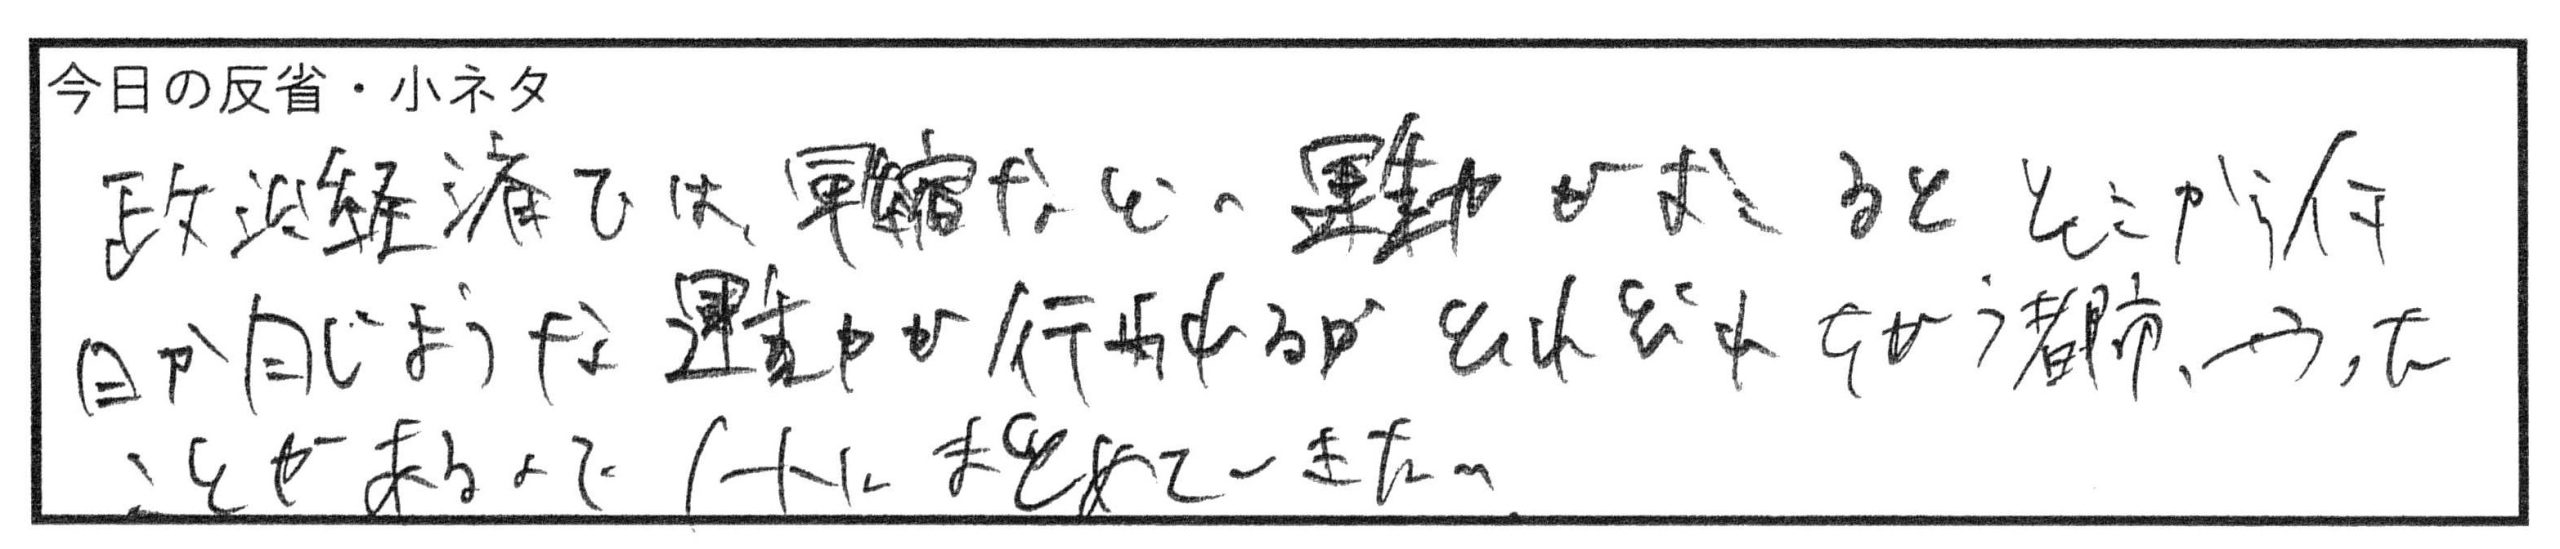 今日の反省・小ネタ
政治経済では、軍縮などの運動がおこるとそこから何
日か同じような運動が行われるがそれぞれちがう都市、やった
ことがあるのでノートにまとめていきたい